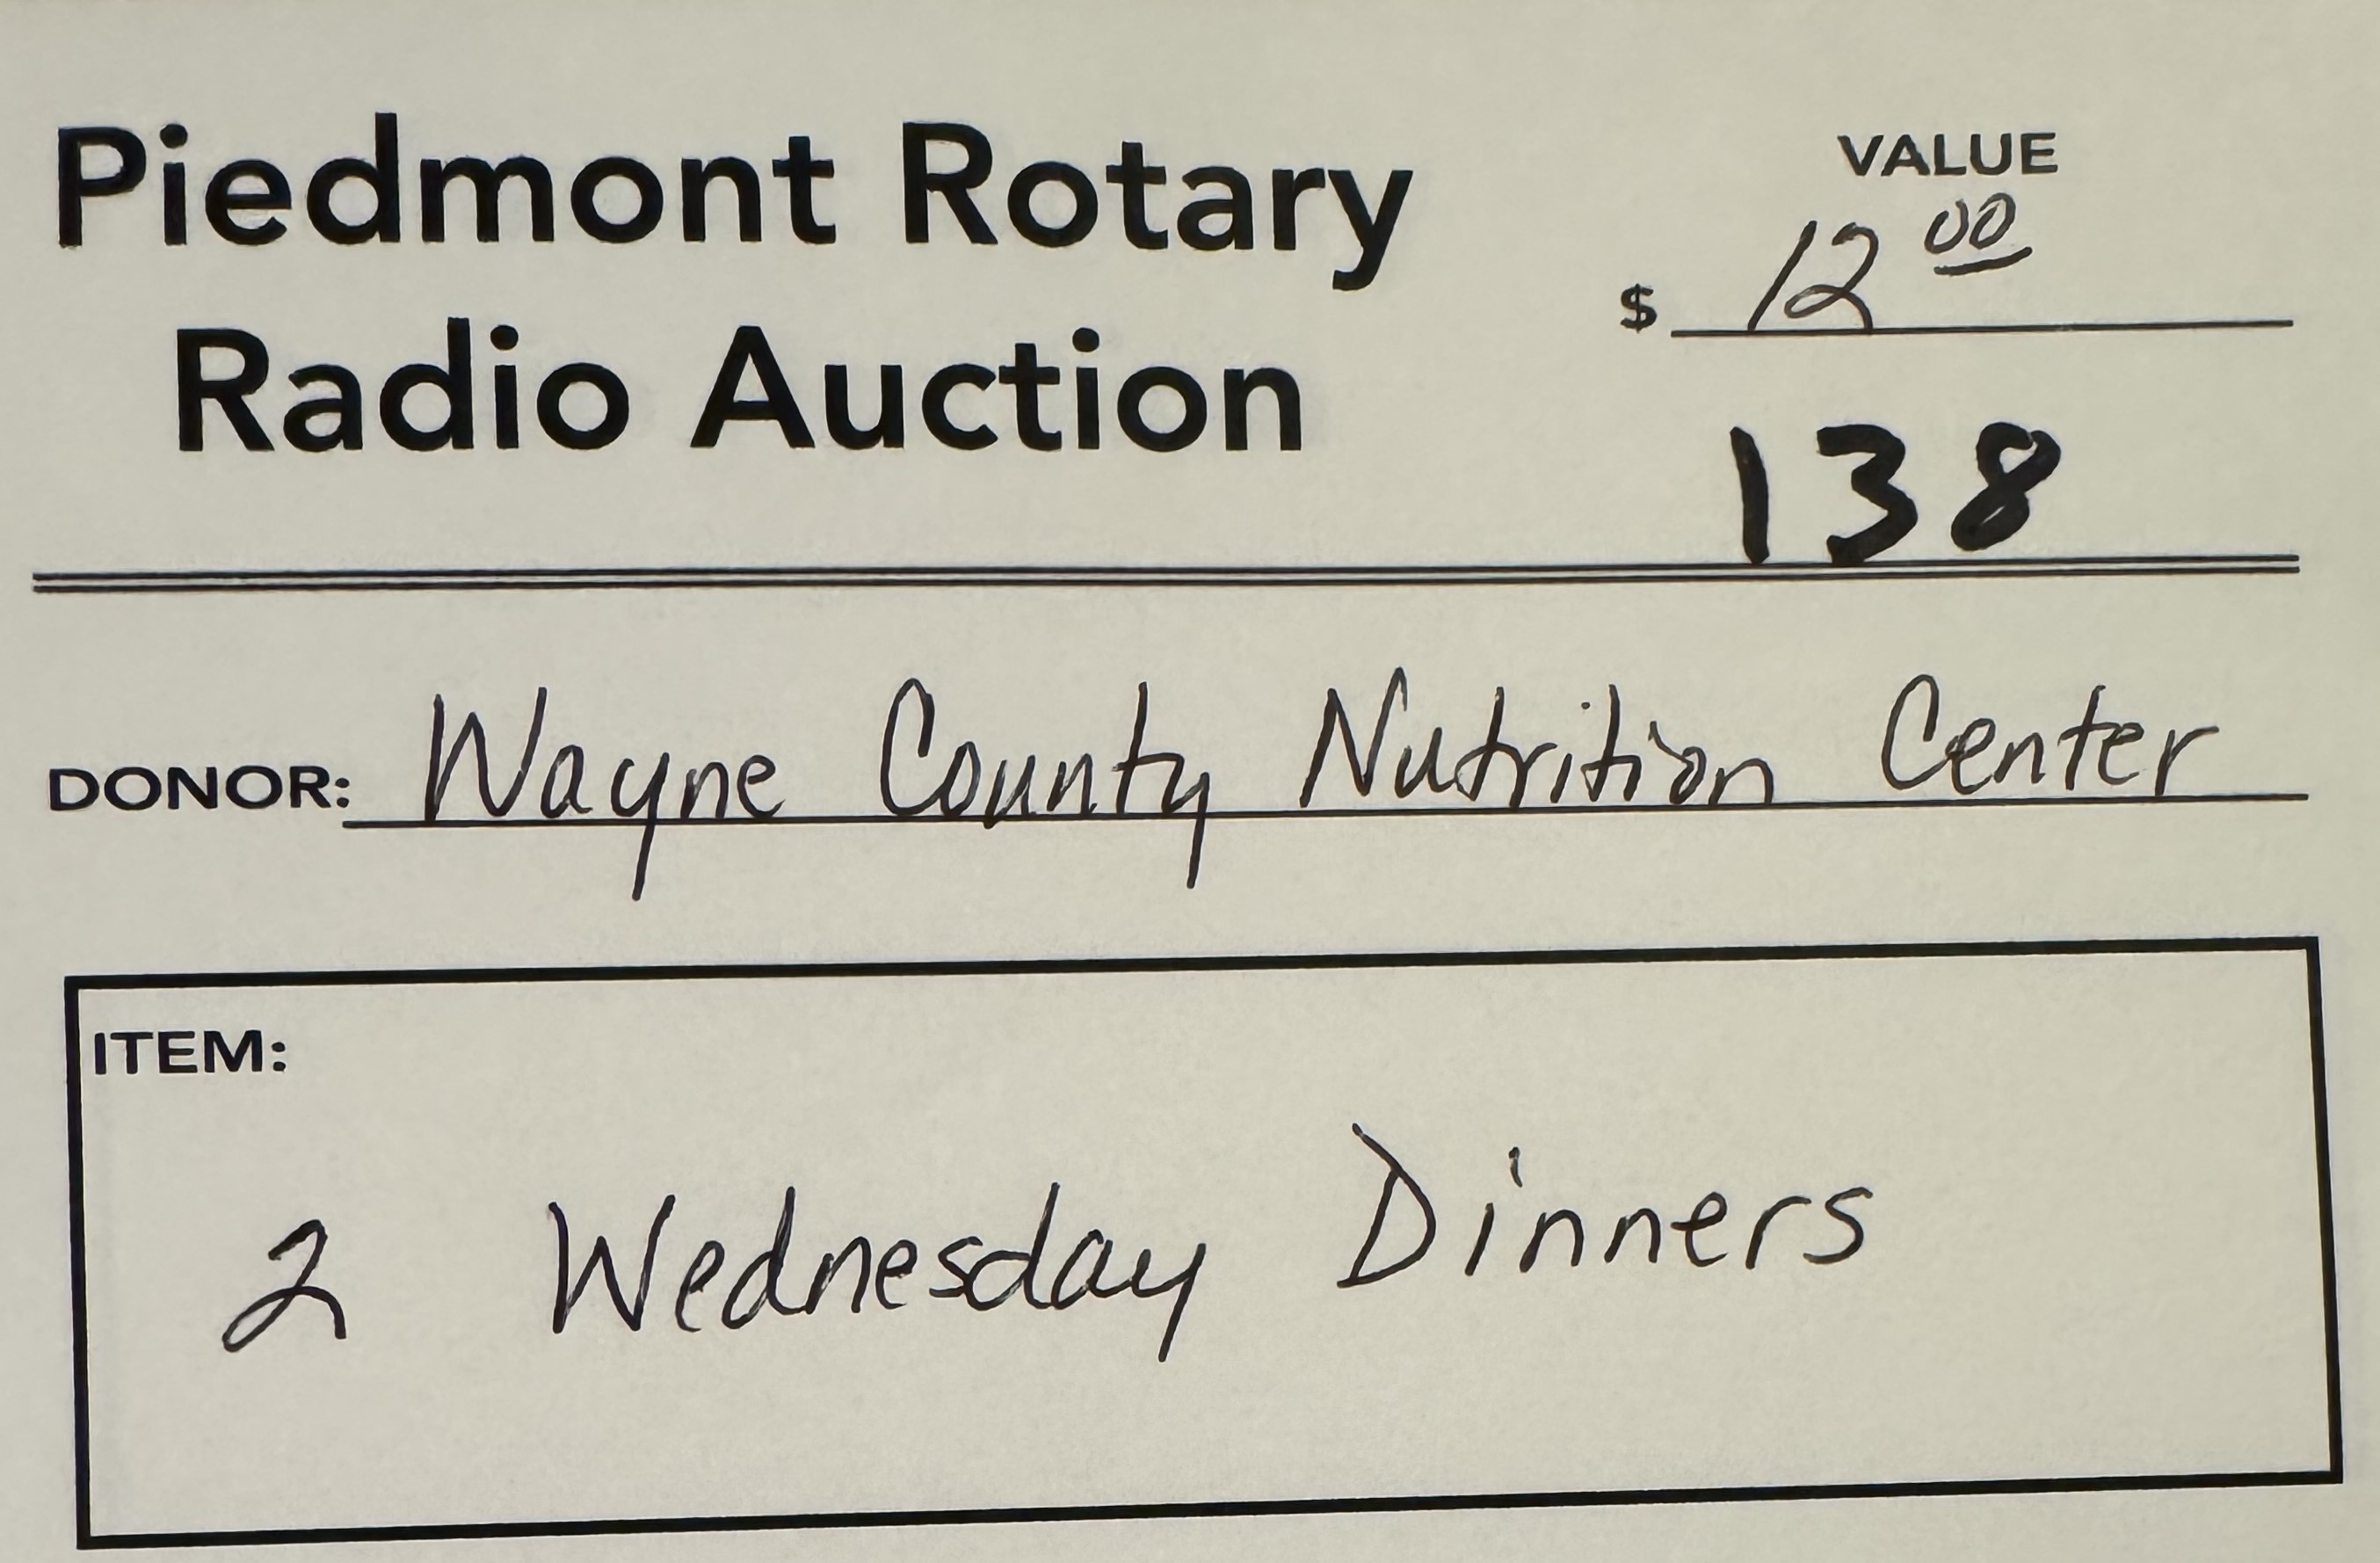 Piedmont Rotary
Radio Auction
VALUE
$ 12 00
138
DONOR: Wayne County Nutrition Center
ITEM:
2 Wednesday Dinners